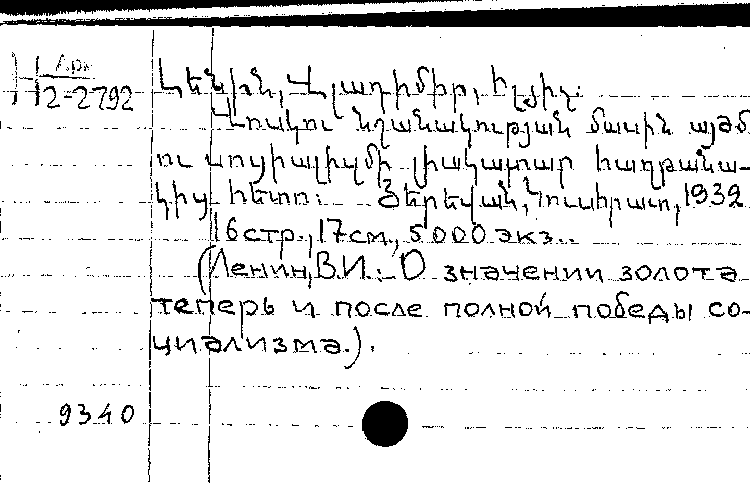 Арм
Н 2-2792
Լենին, Վլադիմիր, Իլյիչ.
Վոսկու նշանակության մասին այժմ
ու սոցիալիզմի լիակատար հաղթանա-
կից հետո: Յերեվան, Կուսհրատ, 1932
16 стр., 17 см., 5.000 экз..
(Ленин, В.И.: О значении золота
теперь и после полной победы со-
циализма.).
9340